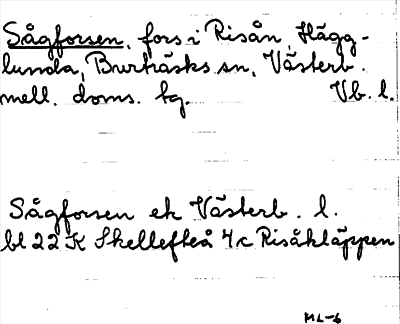 Sågforsen, fors i Risån, Hägg-
lunda, Burträsks sn, Västerb.
mell. doms. tg. Vb. l.
Sågforsen ek Västerb. l.
bl 22 K Skellefteå 4c Risåkläppen
ML-6